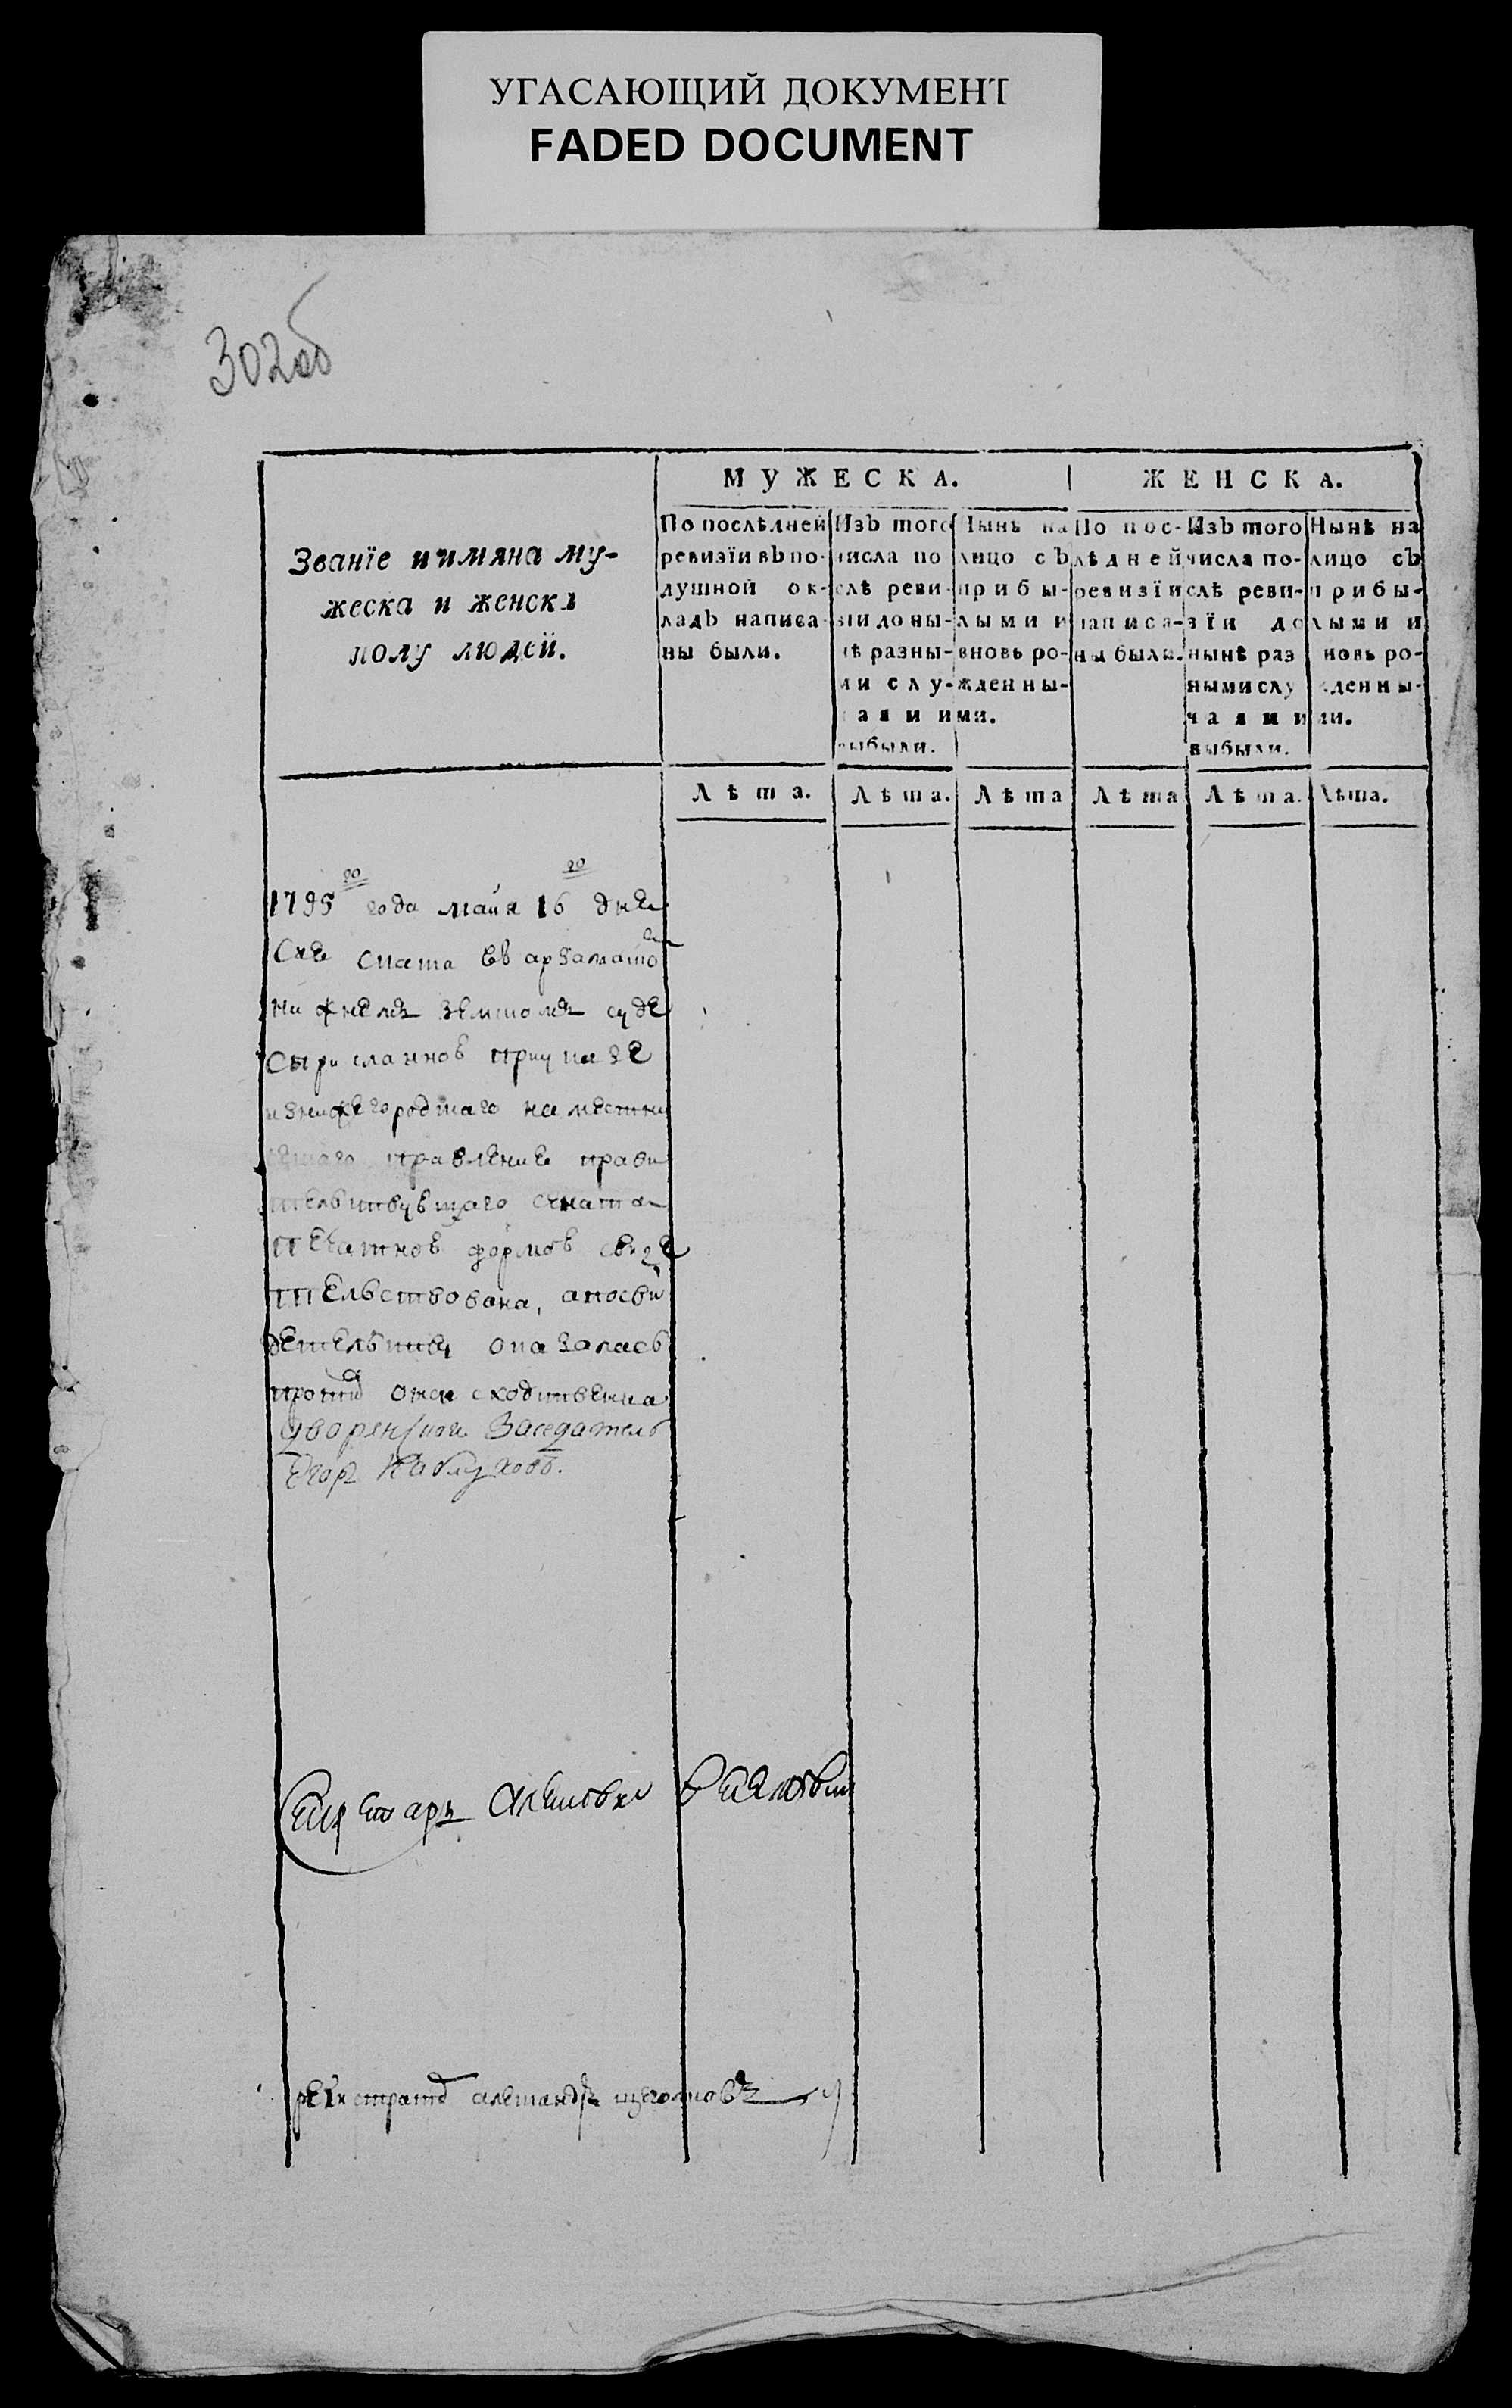 УГАСАЮЩИЙ ДОКУМЕНТ
FADED DOCUMENT
302об
МУЖЕСКА. ЖЕНСКА.
Званїе и имяна му-
жеска и женска
полу людей.
По послѣдней
ревизїи въ по-
душной ок-
ладъ написа-
ны были.
Изъ того
числа по
слѣ реви-
зіи до ны-
нѣ разны-
ми слу-
чаями
выбыли.
Нынѣ на
лицо съ
прибы-
лыми и
вновь ро-
жденны-
ми.
По пос-
лѣдней
ревизїи
написа-
ны были.
Изъ того
числа по-
слѣ реви-
зїи до
нынѣ раз
ными слу
чаями
выбыли.
Нынѣ на
лицо съ
прибы-
лыми и
вновь ро-
жденны-
ми.
Лѣта. Лѣта. Лѣта Лѣта Лѣта. Лѣта.
1795го года майя 16го дня
Сия скаска въ арзамаско
нижнемъ земскомъ суде
сприсланнов приуказе
изнижегородскаго наместни
ческаго правление прави
тельствующаго сената
печатнов формов свиде
тельствована, апосви
детельству оказалась
против онеи сходственна
Дворянскои Заседатель
Егор Каблуковъ.
Секретарь Алексѣи
регистратор александръ щеголковъ